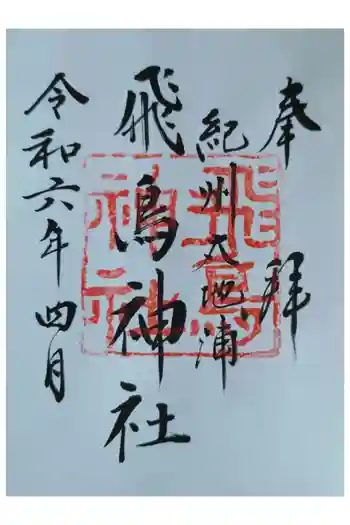 奉拝
紀州太地浦
飛鳥神社
令和六年四月
飛鳥
神社